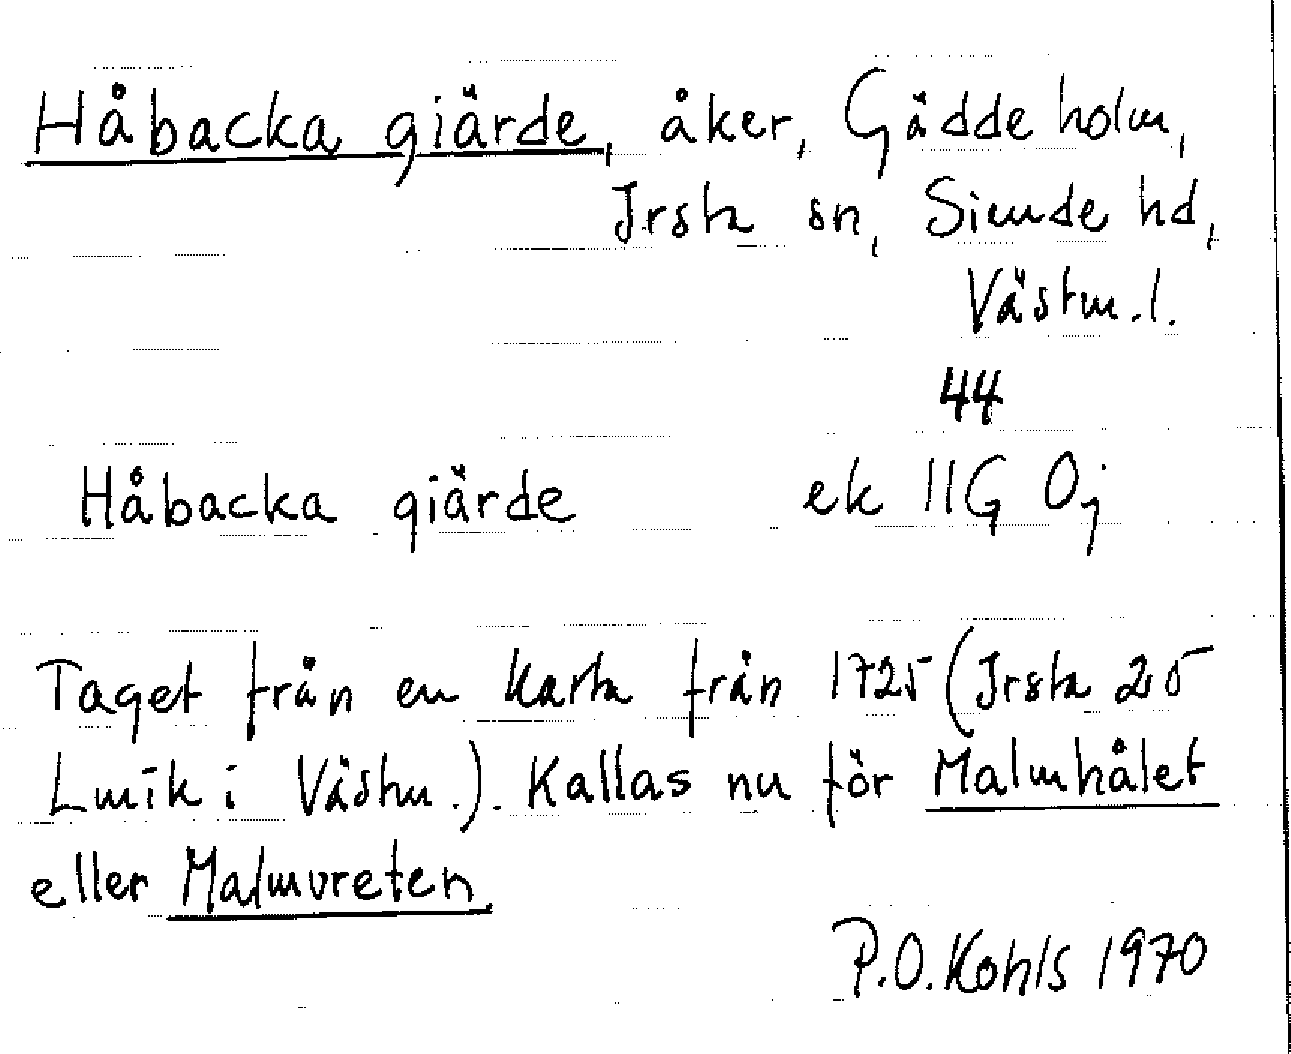 Håbacka giärde, åker, Gäddeholm,
Irsta sn, Siende hd,
Västm.l.
44
Håbacka giärde ek 11G Oj
Taget från en karta från 1725 (Irsta 25
Lmik i Västm.). Kallas nu för Malmhålet
eller Malmvreten
P.O. Kohls 1970